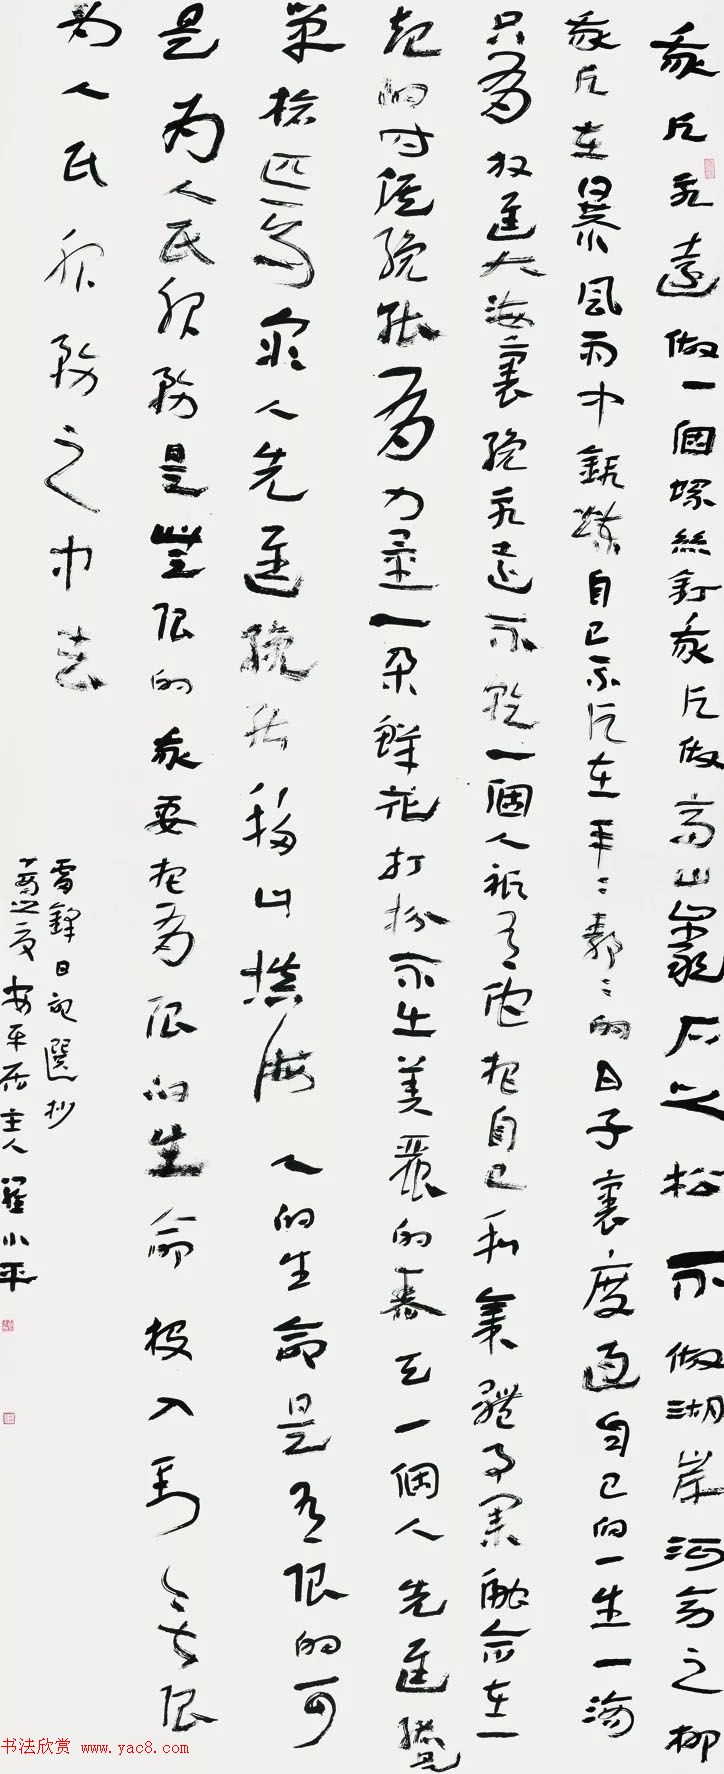 我愿永遠做一個螺絲釘我愿做高山巖石之松不做湖岸河旁之柳
我愿在暴風雨中鍛煉自己不愿在平〻靜〻的日子裏度過自己的一生一滴
只有放進大海裏纔永遠不乾一個人祇有他把自己和集體事業融合在一
起的時候纔能有力量一朵鮮花打扮不出美麗的春天一個人先進總是
單槍匹馬眾人先進纔能移山填海 人的生命是有限的可
是為人民服務是無限的我要把有限的生命投入到無限
為人民服務之中去
雷鋒日記選抄
之夏安平居主人翟小平
书法欣赏 www.yac8.com